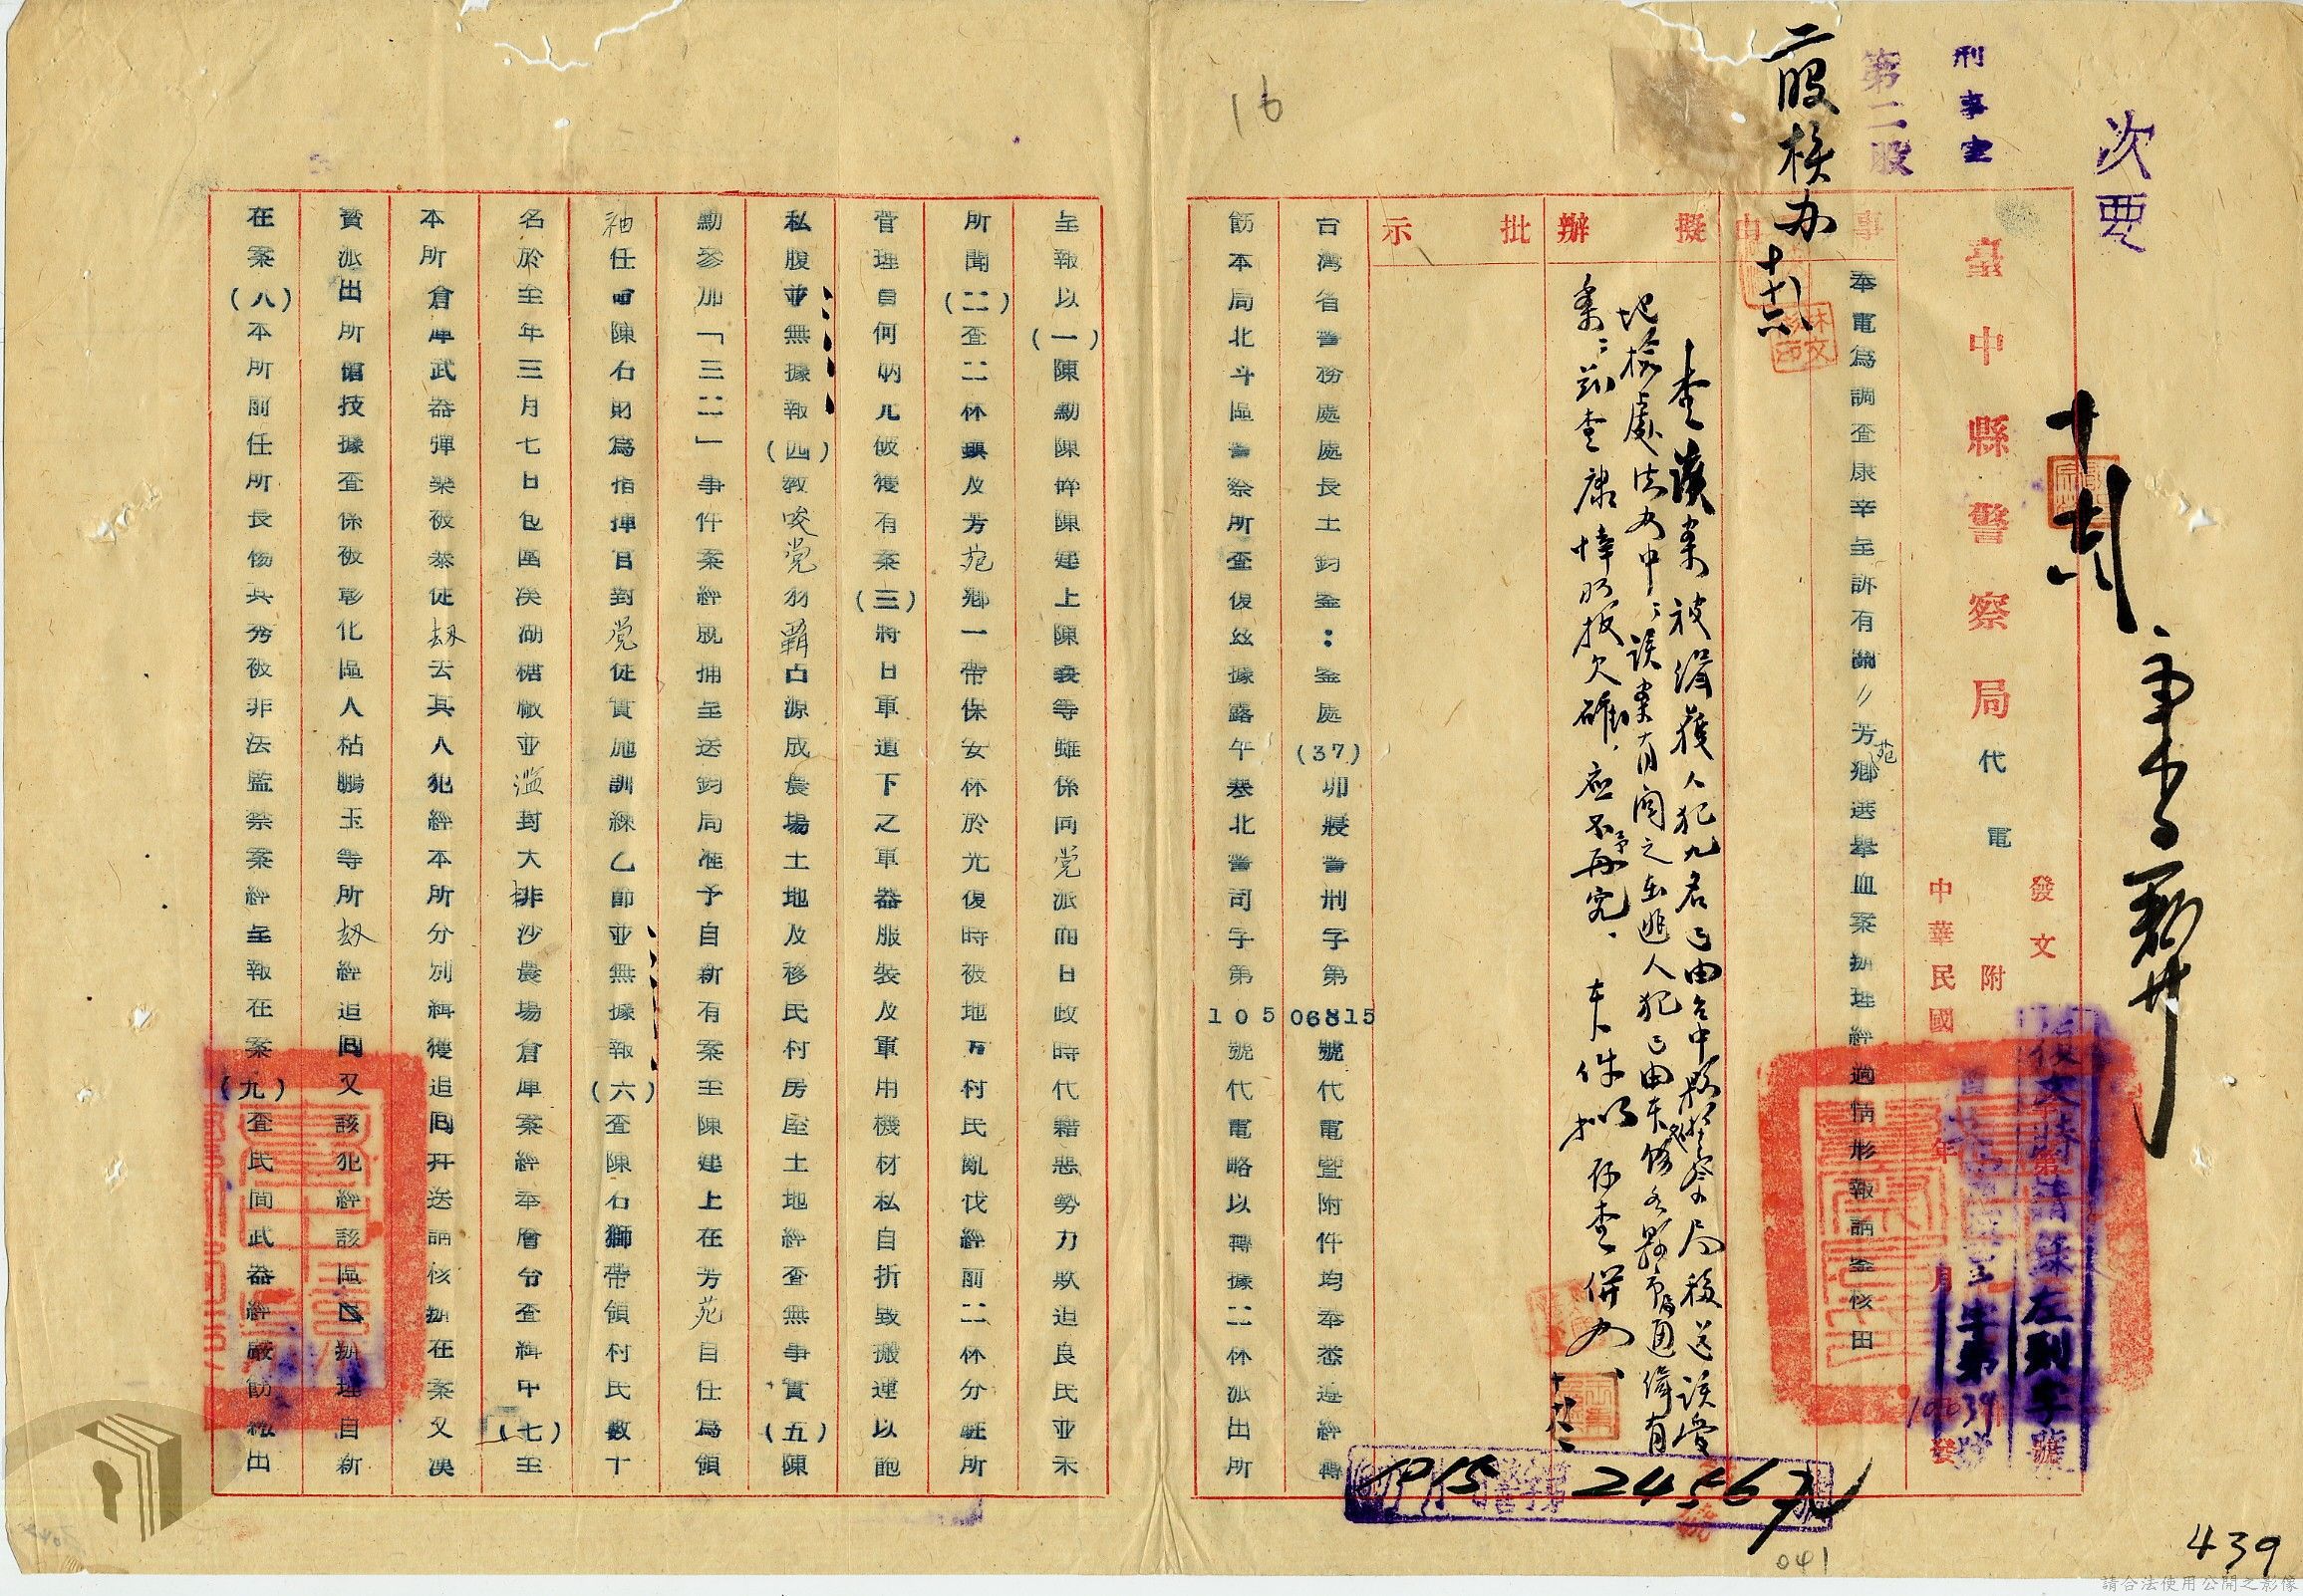 次要
刑事室
第二股
二股核办
臺中縣警察局代電
發文
附
中華民國
年
月
發
復文時請錄左列字號
10039
事由
擬辦
批示
奉電為調查康幸呈訴有關〃芳苑鄉選舉血案辦理經過情形報請鑒核由
查該案被緝獲人犯九名已由台中縣警察局移送該管
地檢處法办中；該案有關之在逃人犯已由本處飭各縣市局通緝有
案；茲查康幸所报欠確，應不予再究，本件拟存查併办、
台灣省警務處處長王鈞鑒：鑒處(37)卯寢警刑字第06815號代電暨附件均奉悉遵經轉
飭本局北斗區警察所查復茲據露午寒北警司字第105號代電略以轉據二林派出所
呈報以(一)陳勳陳倖陳建上陳義等雖係同党派而日政時代藉惡勢力欺迫良民並未
所聞(二)查二林鎮及芳苑鄉一帶保安林於光復時被地方村民亂伐經前二林分駐所
管理員何炳元破獲有案(三)將日軍遺下之軍器服裝及軍用機材私自折毀搬運以飽
私腹並無據報(四)教唆党羽霸占源成農場土地及移民村房屋土地經查無事實(五)陳
勳參加「三二」事件案經脫捕呈送鈞局准予自新有案至陳建上在芳苑自任為領
袖任命陳石財為指揮官對党徒實施訓練乙節並無據報(六)查陳石獅帶領村民數十
名於至年三月七日包圍溪湖糖廠並濫封大排沙農場倉庫案經奉層令查緝中(七)至
本所倉庫武器彈藥被暴徒刼去其人犯經本所分別緝獲追回幷送請核辦在案又溪
資派出所舘技據查係被彰化區人粘鵬玉等所刼經追回又該犯經該區已辦理自新
在案(八)本所前任所長楊其秀被非法監禁案經呈報在案(九)查民間武器經嚴飭繳出
P15
2456
16
041
439
請合法使用公開之影像